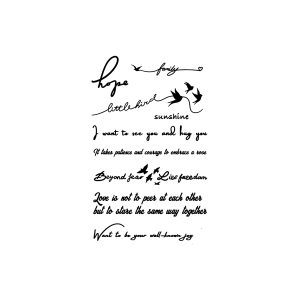 hope
family
little bird
sunshine
I want to see you and hug you
It takes patience and courage to embrace a rose
Beyond fear Lies freedom
Love is not to peer at each other
but to stare the same way together
Want to be your well-known joy